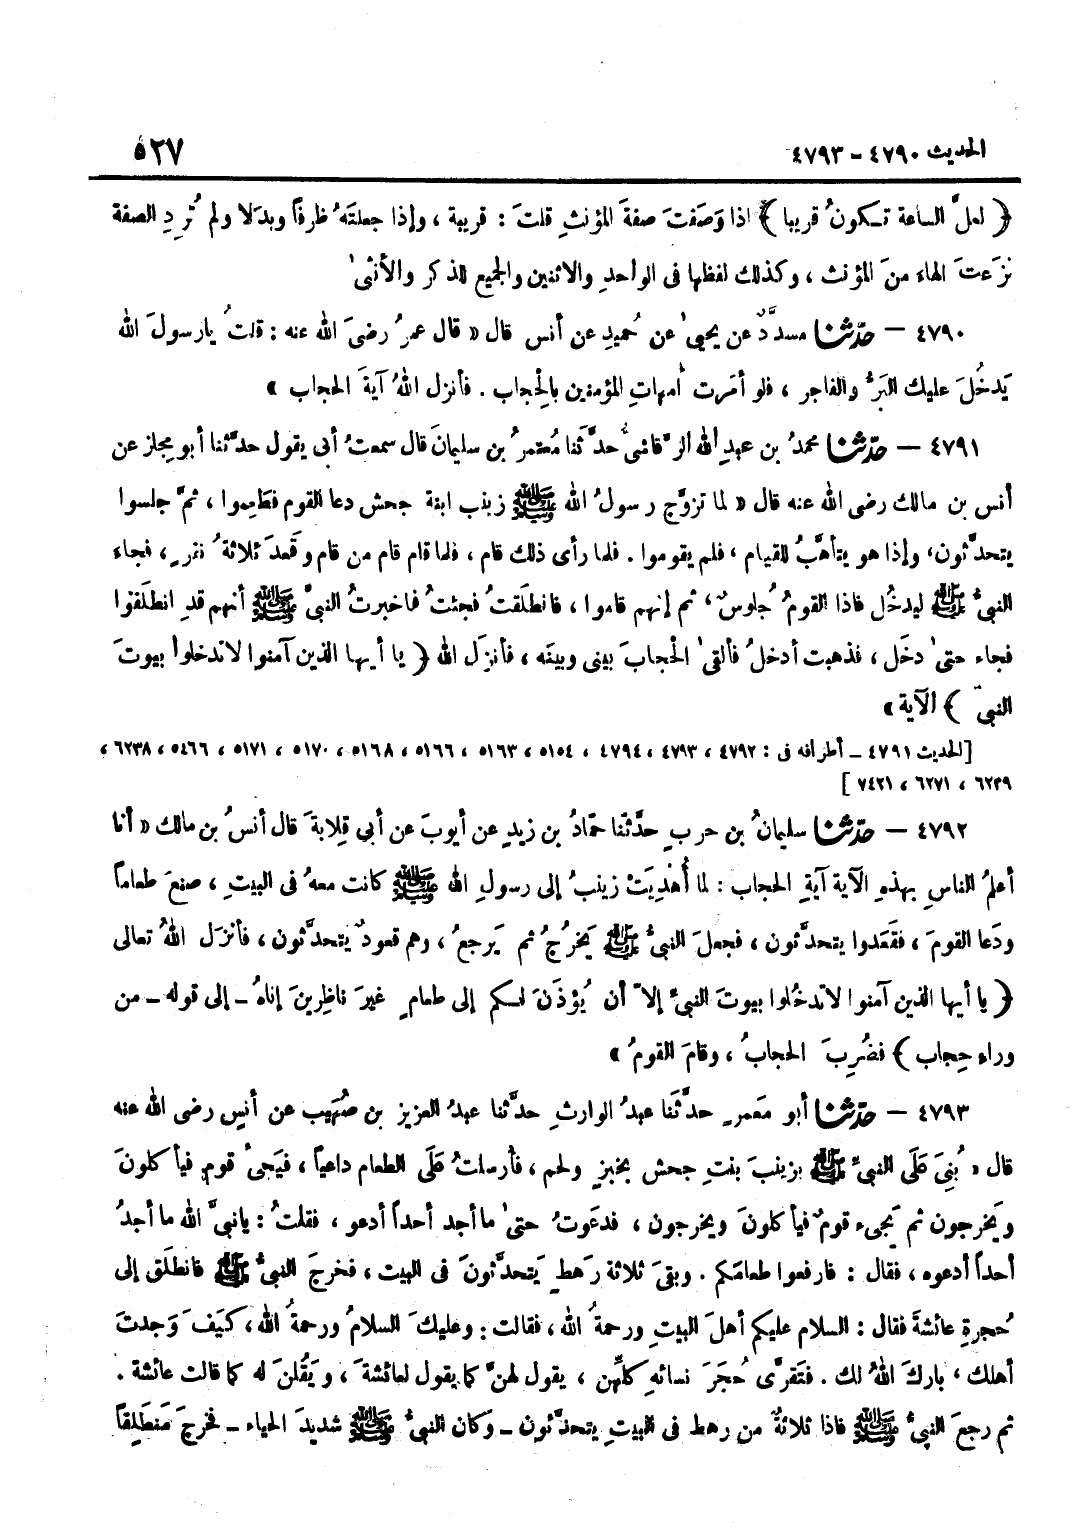 الحديث ٤٧٩٠ – ٤٧٩٣ ٥٢٧
﴿ لعلَّ الساعة تكونُ قريبا ﴾ اذا وَصَفتَ صفةَ المؤنثِ قلتَ : قريبة ، وإذا جعلتَهُ ظرفاً وبدَلا ولم تُردِ الصفة
نزَعتَ الهاء منَ المؤنث ، وكذلك لفظها فى الواحدِ والاثنين والجميع للذكر والأنثىٰ
٤٧٩٠ – حدّثنا مسدَّدٌ عن يحيىٰ عن حُميدٍ عن أنس قال « قال عمرُ رضىَ الله عنه : قلتُ يارسولَ الله
يَدخُلَ عليك البَرُّ والفاجر ، فلو أمَرت أمهاتِ المؤمنين بالحِجاب . فأنزل اللهُ آيةَ الحجاب »
٤٧٩١ – حدّثنا محمدُ بن عبدِ الله الرَّقاشىُّ حدَّثنا مُعتمرُ بن سليمانَ قال سمعتُ أبى يقول حدَّثنا أبو مِجلز عن
أنس بن مالك رضى الله عنه قال « لما تزوَّج رسولُ الله ﷺ زينب ابنة جحش دعا القوم فطعِموا ، ثمَّ جلسوا
يتحدَّثون، وإذا هو يتأهَّبُ للقيام ، فلم يقوموا . فلما رأى ذلك قام ، فلما قام قام من قام وقَعدَ ثلاثةُ نفرٍ ، فجاء
النبىُّ ﷺ ليدخُل فاذا القومُ جُلوسٌ، ثم إنهم قاموا ، فانطلَقتُ فجئتُ فاخبرتُ النبىَّ ﷺ أنهم قدِ انطلَقوا
فجاء حتىٰ دخَل ، فذهبت أدخلُ فألقىٰ الحجابَ بينى وبينَه ، فأنزَل الله ﴿ يا أيها الذين آمنوا لاتدخلوا بيوتَ
النبىّ ﴾ الآية »
[الحديث ٤٧٩١ – أطرافه فى : ٤٧٩٢ ، ٤٧٩٣ ، ٤٧٩٤ ، ٥١٥٤ ، ٥١٦٣ ، ٥١٦٦ ، ٥١٦٨ ، ٥١٧٠ ، ٥١٧١ ، ٥٤٦٦ ، ٦٢٣٨ ،
٦٢٣٩ ، ٦٢٧١ ، ٧٤٢١ ]
٤٧٩٢ – حدّثنا سليمانُ بن حربٍ حدَّثنا حمّادُ بن زيدٍ عن أيوبَ عن أبي قِلابةَ قال أنسُ بن مالك « أنا
أعلمُ الناسِ بهذهِ الآية آيةِ الحجاب : لما أُهدِيَتْ زينبُ إلى رسولِ الله ﷺ كانت معهُ فى البيتِ ، صنعَ طعاماً
ودَعا القومَ ، فقَعَدوا يتحدَّثون ، فجعلَ النبىُّ ﷺ يَخرُجُ ثم يَرجعُ ، وهم قعودٌ يتحدَّثون ، فأنزَل اللهُ تعالى
﴿ يا أيها الذين آمنوا لاتدخُلوا بيوتَ النبىِّ إلاّ أن يُؤذَنَ لكم إلى طعامٍ غيرَ ناظِرينَ إناهُ – إلى قوله – من
وراءِ حِجاب ﴾ فضُرِبَ الحجابُ ، وقامَ القومُ »
٤٧٩٣ – حدّثنا أبو مَعمرٍ حدَّثنا عبدُ الوارثِ حدَّثنا عبدُ العزيز بن صُهَيب عن أنسٍ رضى الله عنه
قال « بُنِىَ عَلَى النبىِّ ﷺ بزينبَ بنتِ جحش بخبزٍ ولحم ، فأرسلتُ عَلَى الطعام داعياً ، فيَجىءُ قوم فيأكلونَ
ويَخرجون ثم يَجىء قومٌ فيأكلونَ ويخرجون ، فدعَوتُ حتىٰ ما أجد أحداً أدعو ، فقلتُ : يانبىَّ الله ما أجدُ
أحداً أدعوه ، فقال : فارفعوا طعامَكم . وبقىَ ثلاثة رَهطٍ يَتحدَّثونَ فى البيت ، فخرجَ النبىُّ ﷺ فانطلَق إلى
حُجرةِ عائشةَ فقال : السلام عليكم أهلَ البيتِ ورحمةُ الله ، فقالت : وعليكَ السلامُ ورحمةُ الله، كيَفَ وَجدتَ
أهلك ، باركَ اللهُ لك . فتَقرَّى حُجَرَ نسائهِ كلِّهن ، يقول لهنَّ كما يقول لعائشةَ ، ويَقُلنَ له كما قالت عائشة .
ثم رجعَ النبىُّ ﷺ فاذا ثلاثةٌ من رهط فى البيتِ يتحدَّثون – وكان النبىُّ ﷺ شديدَ الحياء – فخرجَ مَنطَلِقاً